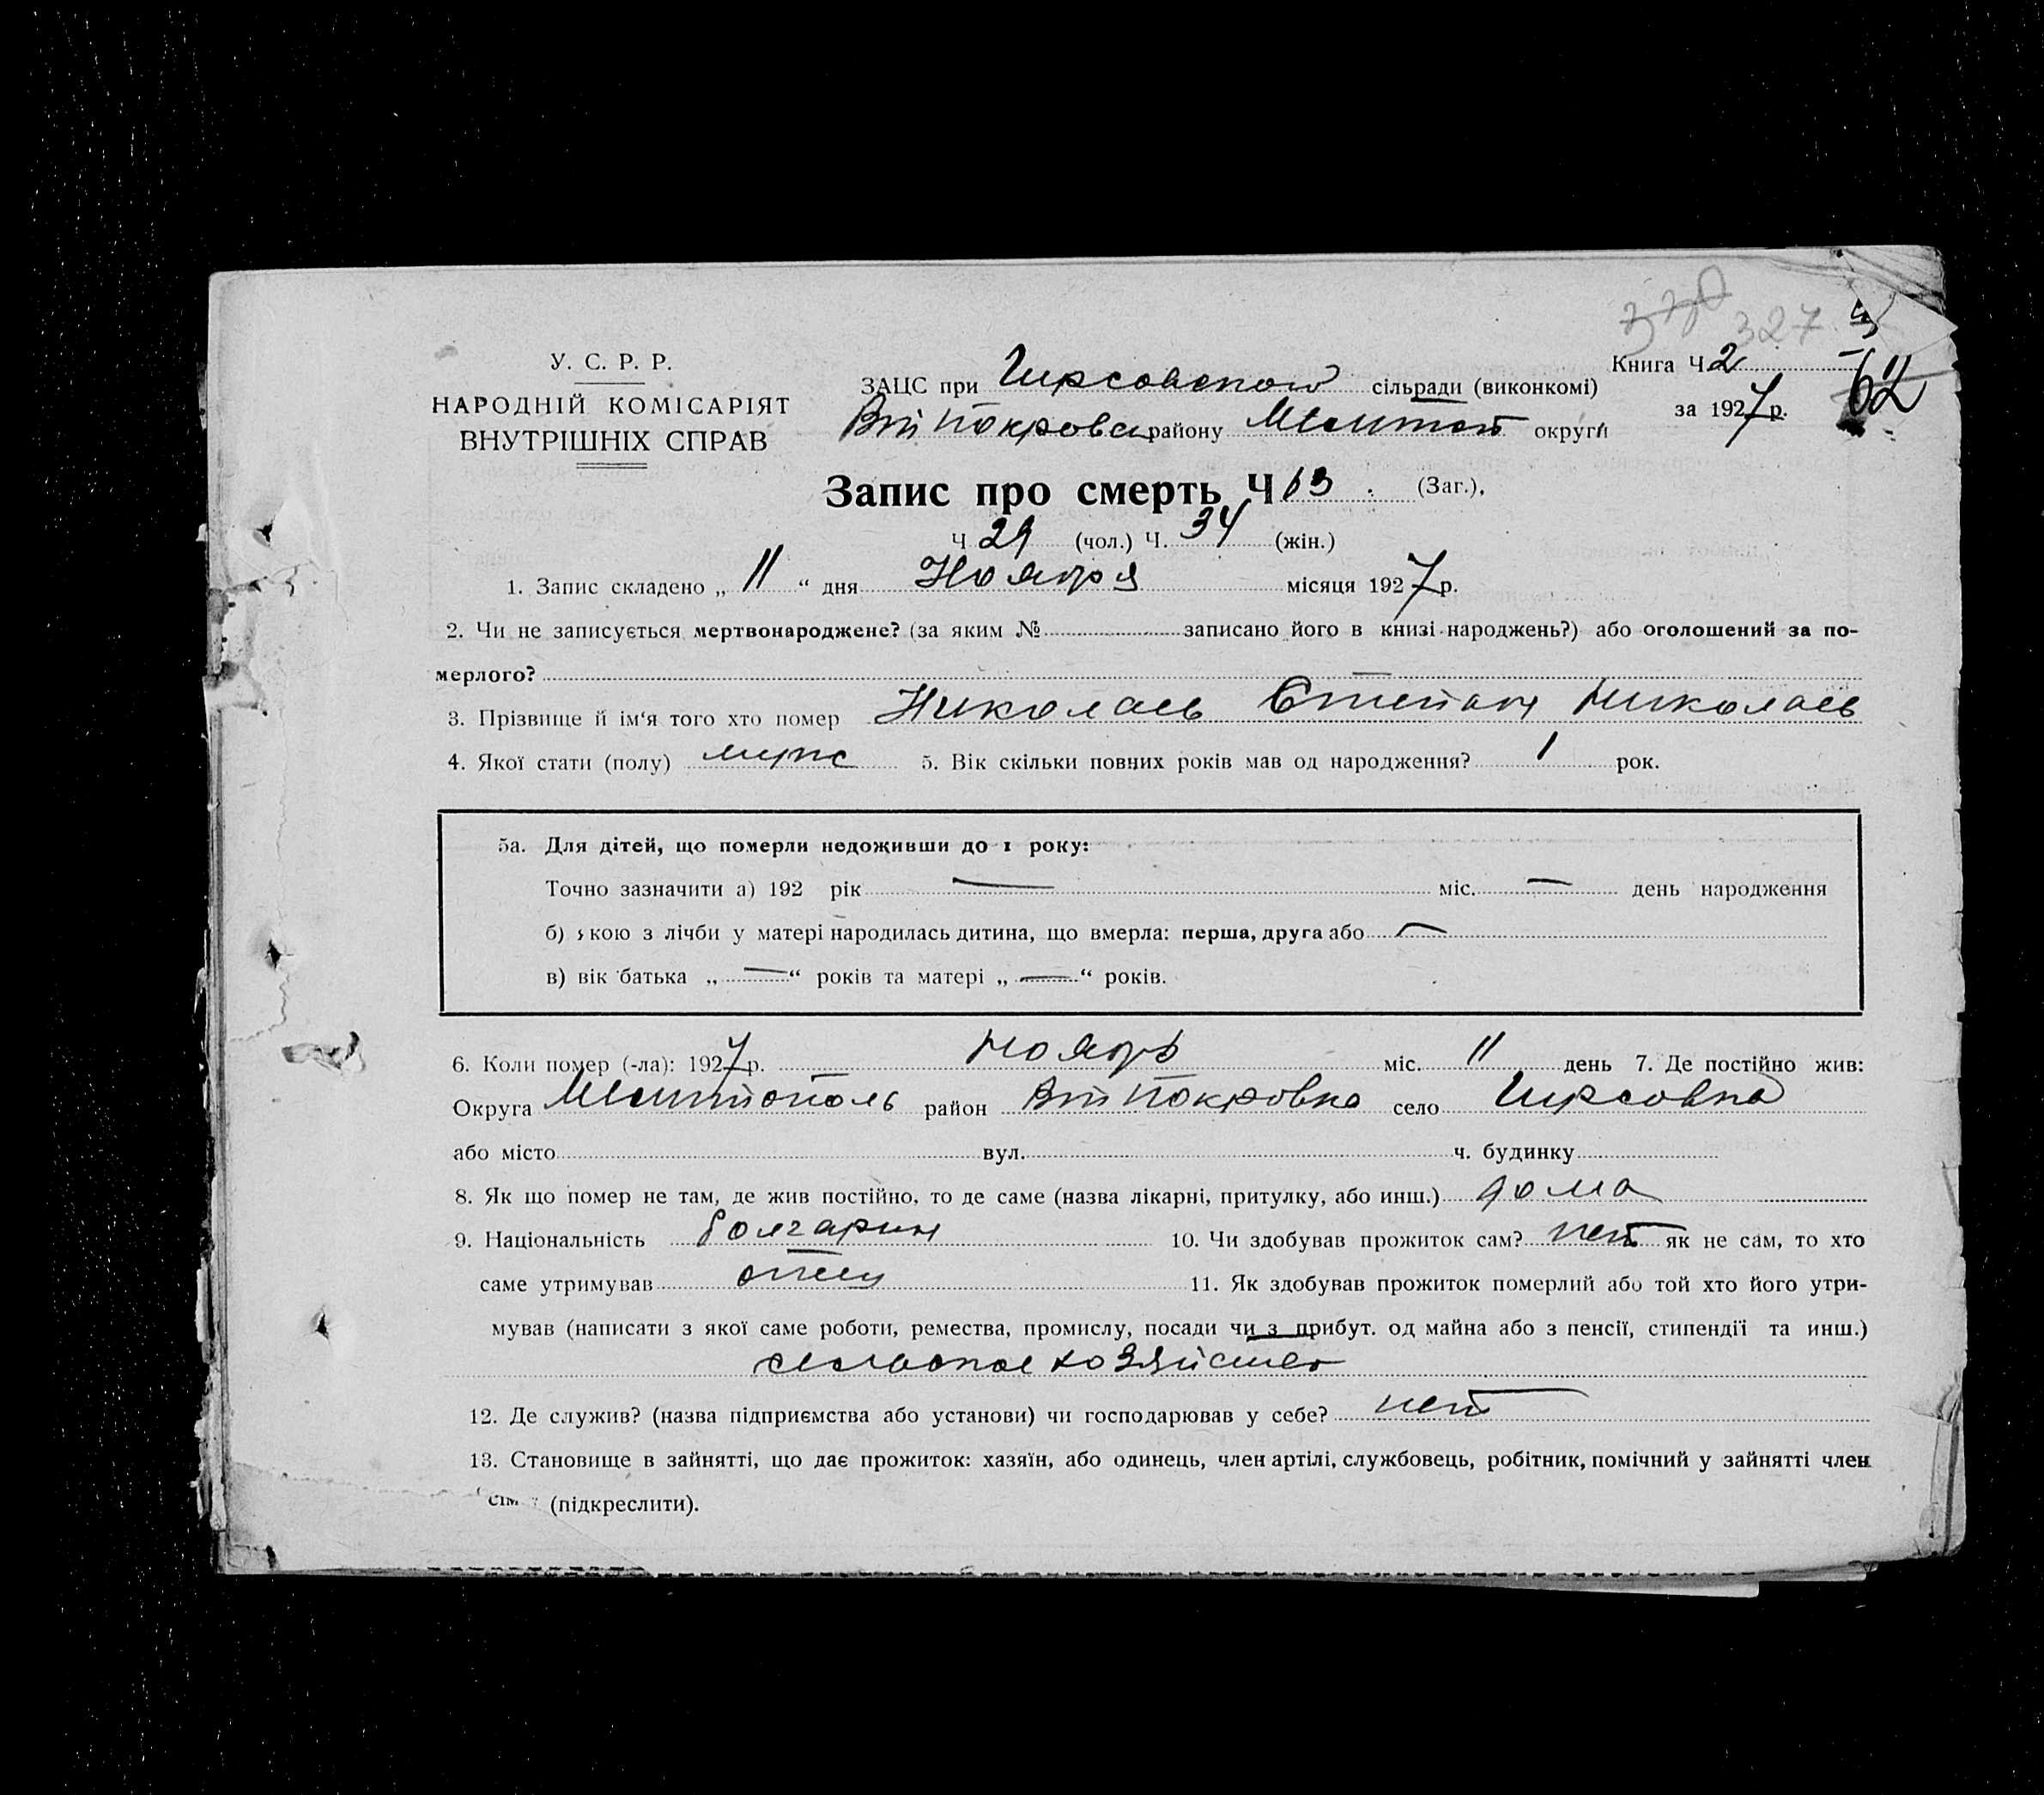 330 327
У. С. Р. Р.
НАРОДНІЙ КОМІСАРІЯТ
ВНУТРІШНІХ СПРАВ
ЗАЦС при Гирсовской сільради (виконкомі)
Книга Ч 2
62
Вт Покровск району Мелитоп округи
за 1927 р.
Запис про смерть Ч 63. (Заг.),
Ч 29 (чол.) Ч. 34 (жін.)
1. Запис складено „ 11 “ дня Ноября місяця 1927 р.
2. Чи не записується мертвонароджене? (за яким № записано його в книзі народжень?) або оголошений за по-
мерлого?
3. Прізвище й ім'я того хто помер Николаев Степан Николаев
4. Якої стати (полу) мужс 5. Вік скільки повних років мав од народження? 1 рок.
5а. Для дітей, що померли недоживши до 1 року:
Точно зазначити а) 192 рік — міс. — день народження
б) якою з лічби у матері народилась дитина, що вмерла: перша, друга або —
в) вік батька „ — “ років та матері „ — “ років.
6. Коли помер (-ла): 1927 р. Ноябрь міс. 11 день 7. Де постійно жив:
Округа Мелитополь район Вт Покровка село Гирсовка
або місто вул. ч. будинку
8. Як що помер не там, де жив постійно, то де саме (назва лікарні, притулку, або инш.) дома
9. Національність болгарин 10. Чи здобував прожиток сам? нет як не сам, то хто
саме утримував отец 11. Як здобував прожиток померлий або той хто його утри-
мував (написати з якої саме роботи, ремества, промислу, посади чи з прибут. од майна або з пенсії, стипендії та инш.)
сельское хозяйство
12. Де служив? (назва підприємства або установи) чи господарював у себе? нет
13. Становище в зайнятті, що дає прожиток: хазяїн, або одинець, член артілі, службовець, робітник, помічний у зайнятті член
сім (підкреслити).